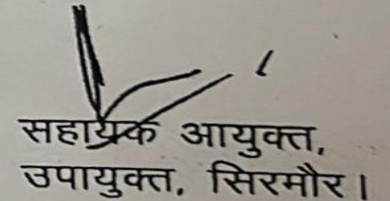 सहायक आयुक्त,
उपायुक्त, सिरमौर।